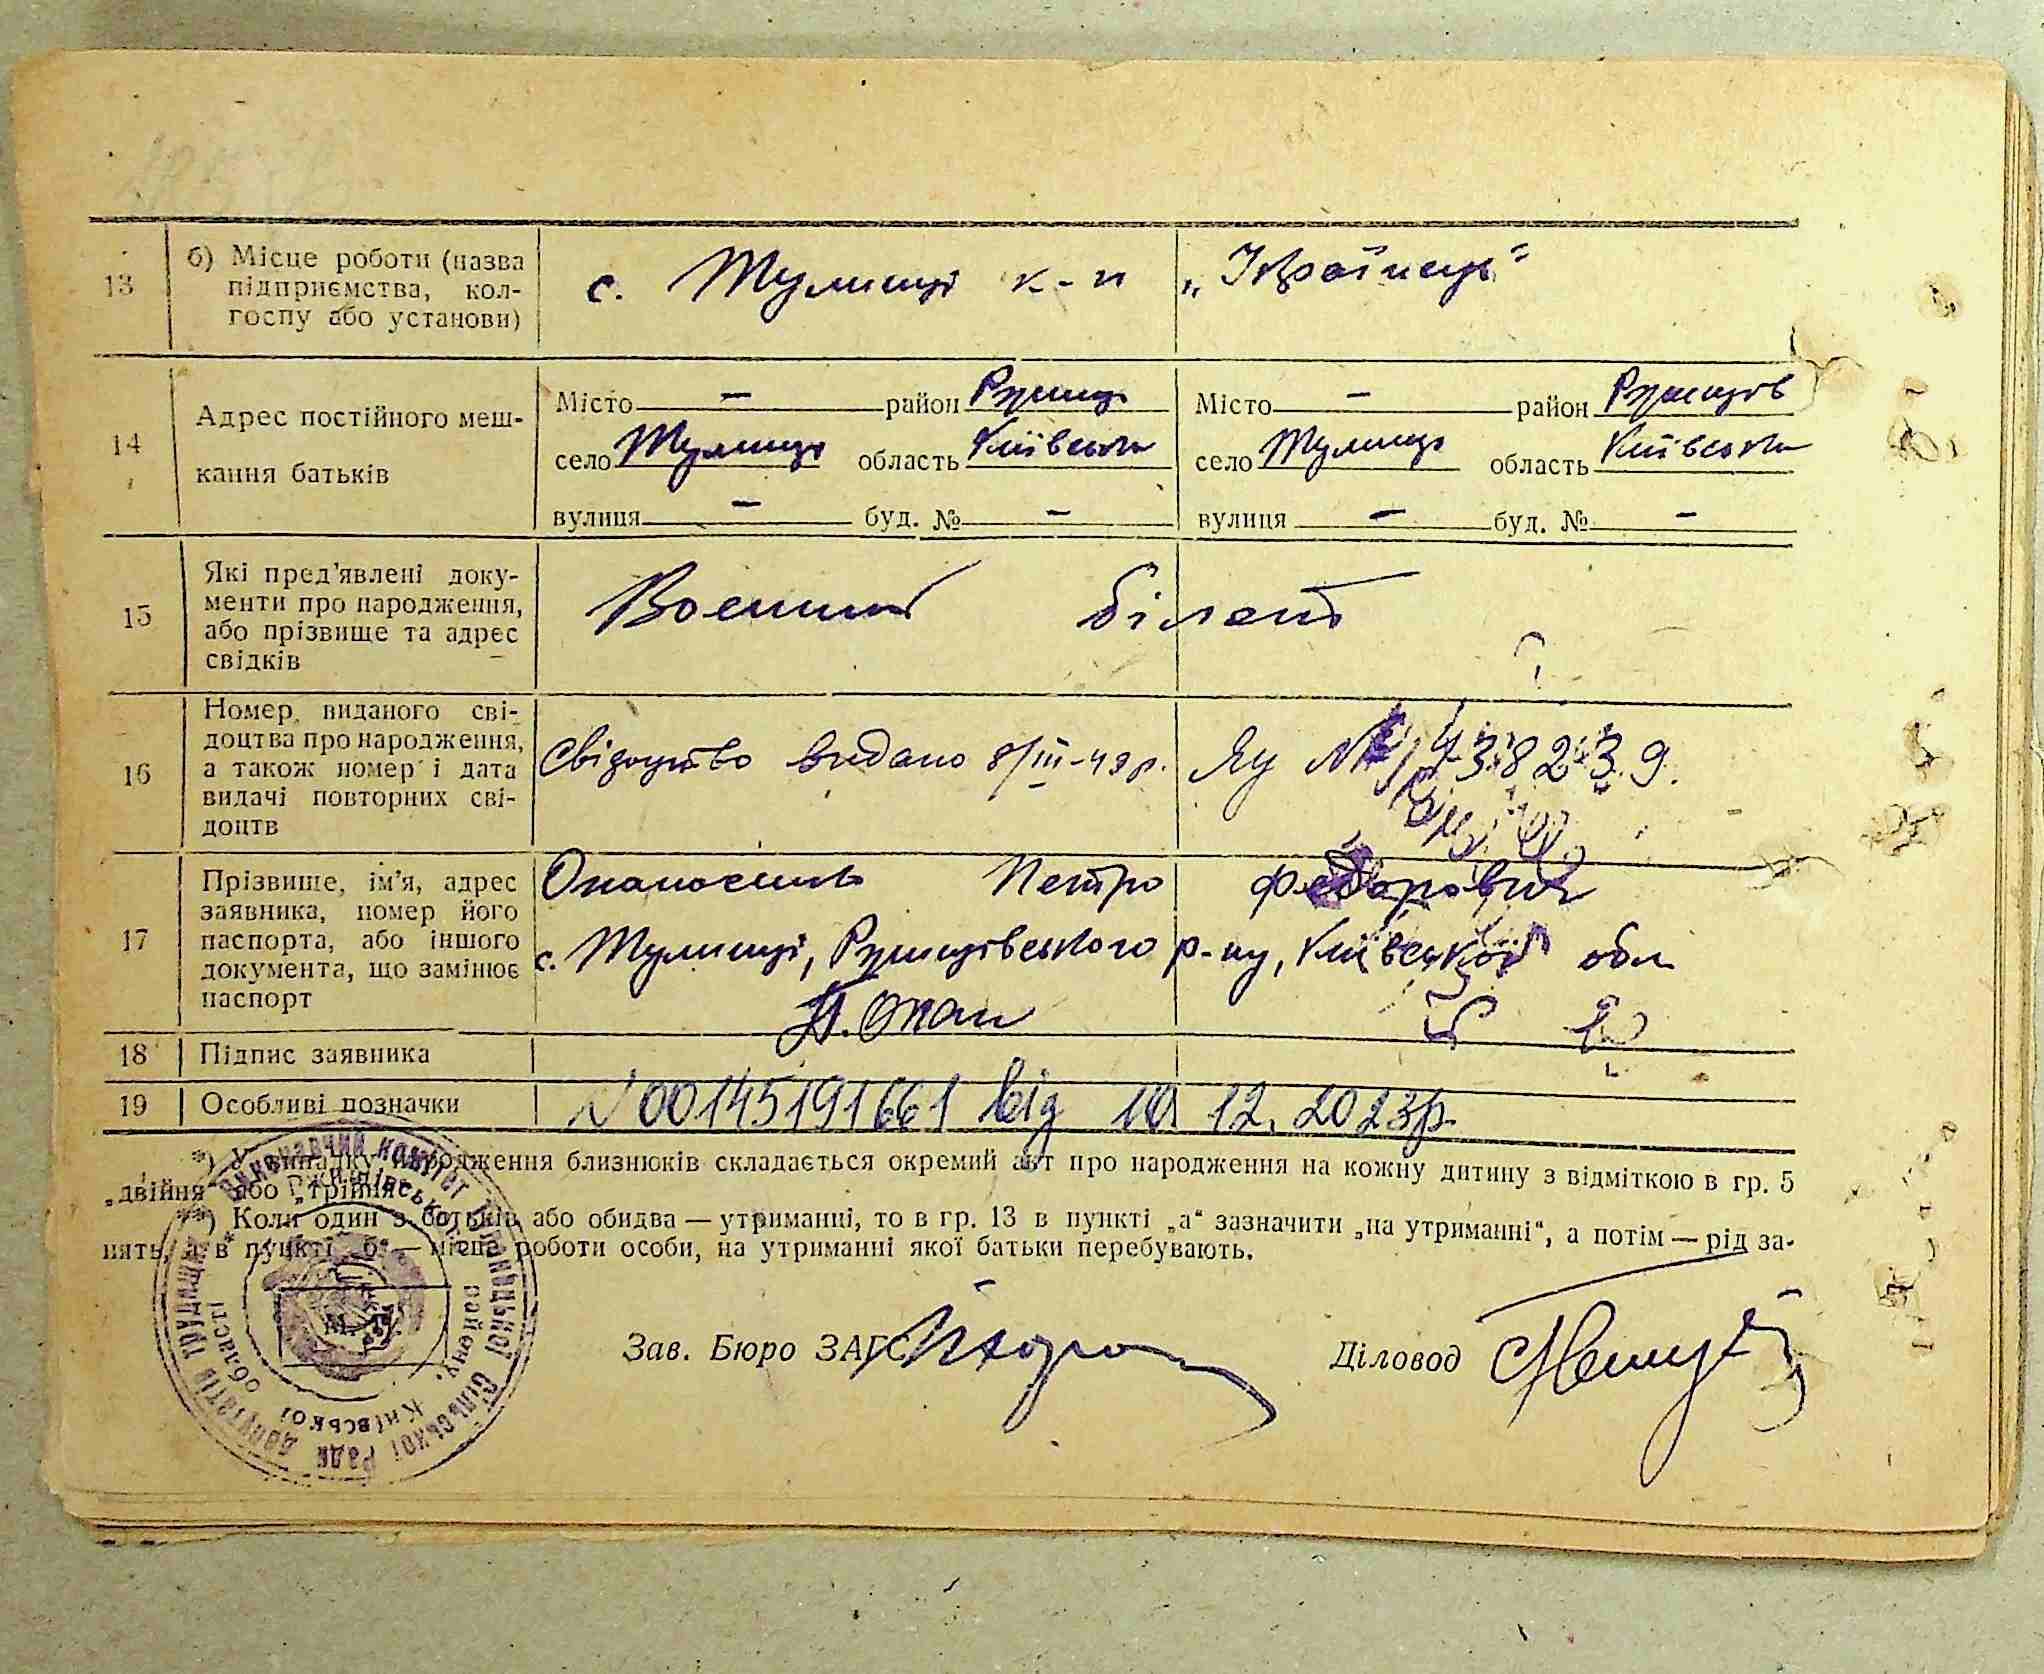 13 б) Місце роботи (назва підприємства, колгоспу або установи) с. Тулинці к-п „Українець"
14 Адрес постійного мешкання батьків
Місто — район Ржищів Місто — район Ржищів
село Тулинці область Київська село Тулинці область Київська
вулиця — буд. № — вулиця — буд. № —
15 Які пред'явлені документи про народження, або прізвище та адрес свідків Военний білет
16 Номер виданого свідоцтва про народження, а також номер і дата видачі повторних свідоцтв Свідоцтво видано 8/III-49р. ЯУ № 738239.
17 Прізвище, ім'я, адрес заявника, номер його паспорта, або іншого документа, що замінює паспорт Петро Федорович
с. Тулинці, Ржищівського р-ну, Київської обл
18 Підпис заявника П. Опан
19 Особливі позначки N 00145191661 від 10. 12. 2023р.
*) У випадку народження близнюків складається окремий акт про народження на кожну дитину з відміткою в гр. 5
„двійня" або „трійня".
**) Коли один з батьків або обидва — утриманці, то в гр. 13 в пункті „а" зазначити „на утриманні", а потім — рід за-
нять, а в пункті „б" — місце роботи особи, на утриманні якої батьки перебувають.
Зав. Бюро ЗАГС Діловод
Виконавчий комітет Тулинської сільської Ради депутатів трудящих
Ржищівського району, Київської області